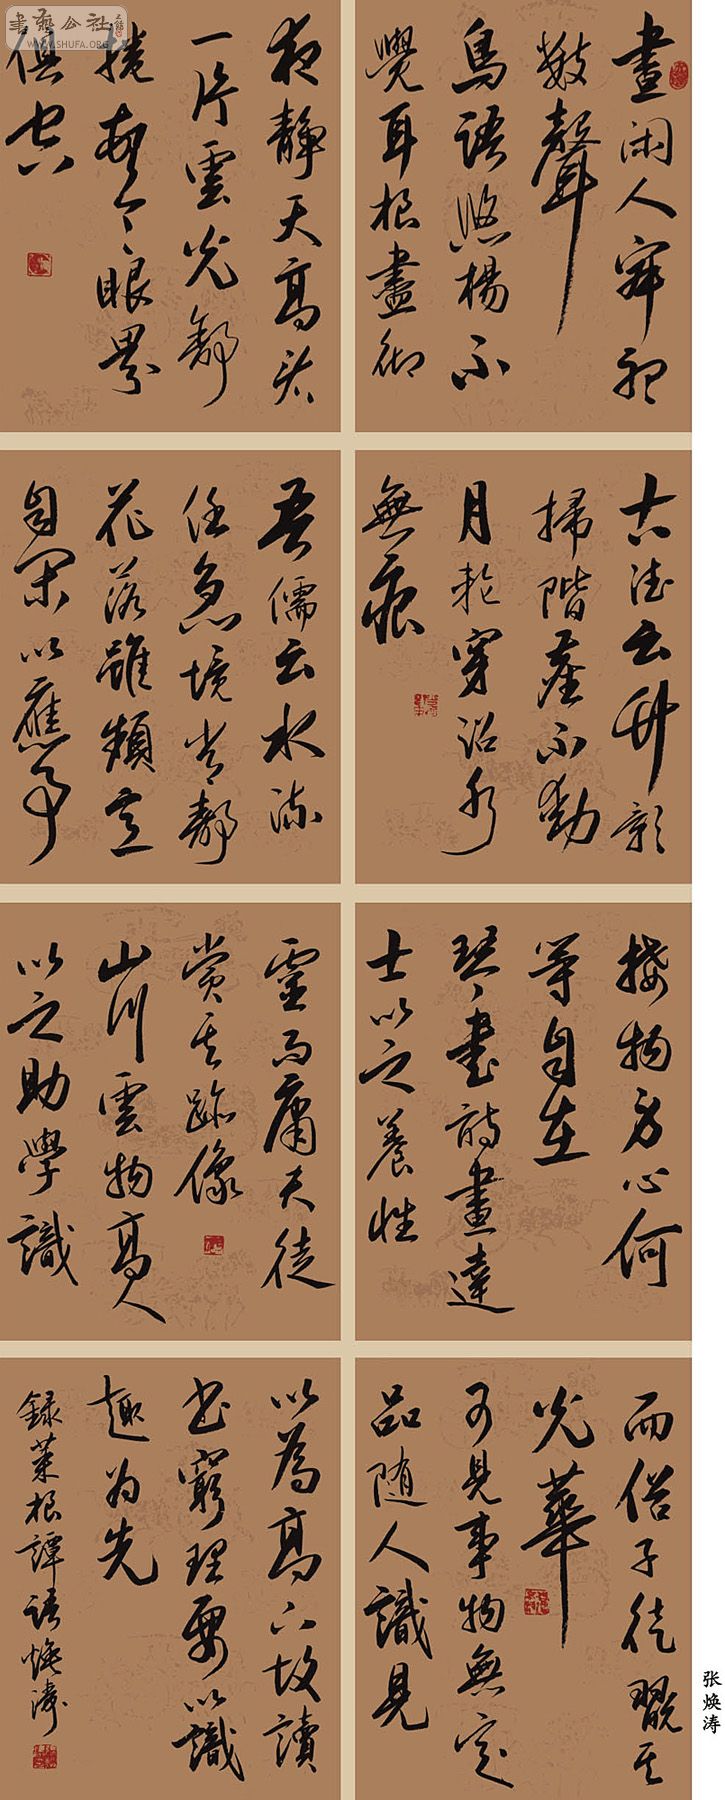 晝闲人寂听
數聲
鳥語悠楊不
覺耳根盡徹
夜静天高看
一片雲光舒
捲頓令眼界
俱空
古德云竹影
掃階塵不動
月輪穿沼水
無痕
吾儒云水流
任急境常静
花落雖頻意
自閑以應事
接物身心何
等自在
琴書詩畫達
士以之養性
靈而庸夫徒
賞其跡像
山川雲物高人
以之助學識
而俗子徒翫其
光華
可見事物無定
品随人識見
以為高下故讀
书窮理要以識
趣为先
録菜根譚語焕涛
张焕涛
書藝公社
WWW.SHUFA.ORG